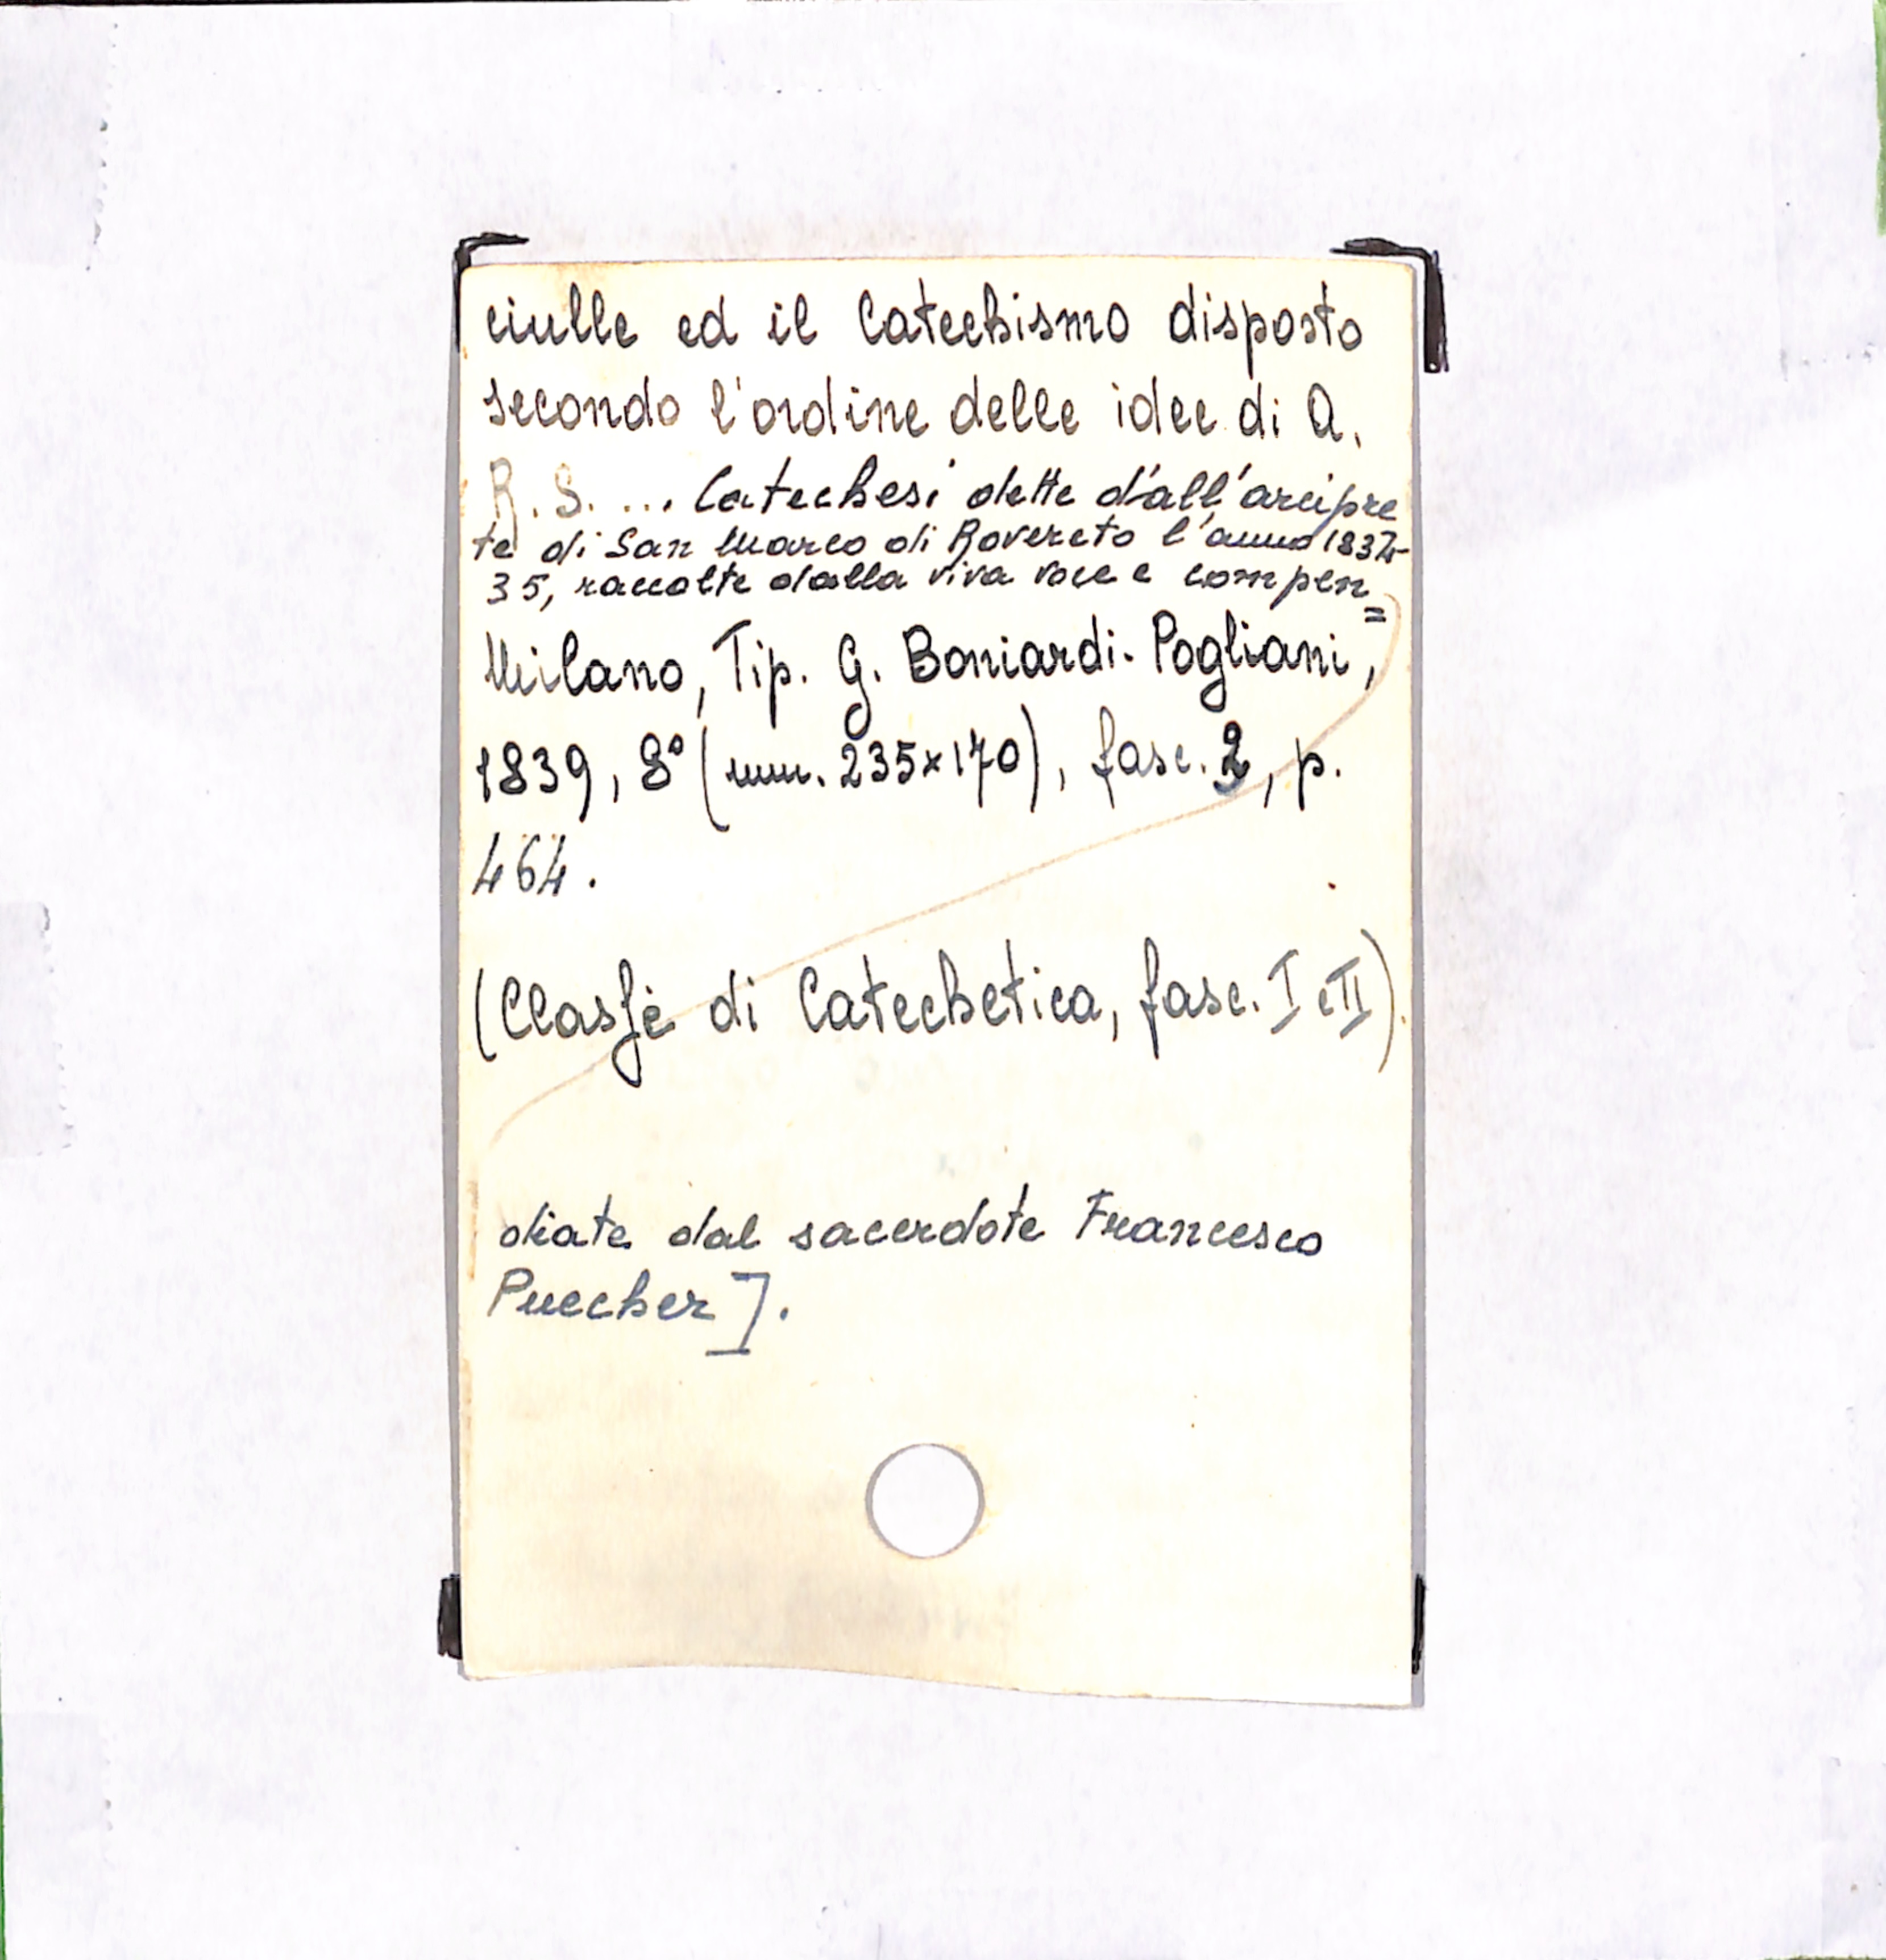 ciulle ed il Catechismo disposto
secondo l'ordine delle idee di A.
R. S. ... Catechesi dette dall'arcipre
te di San Marco di Rovereto l'anno 1834-
35, raccolte dalla viva voce e compen=
Milano, Tip. G. Boniardi-Pogliani,
1839, 8° (mm. 235x170), fasc. 2, p.
464.
(Classe di Catechetica, fasc. I e II).
diate dal sacerdote Francesco
Puecher].